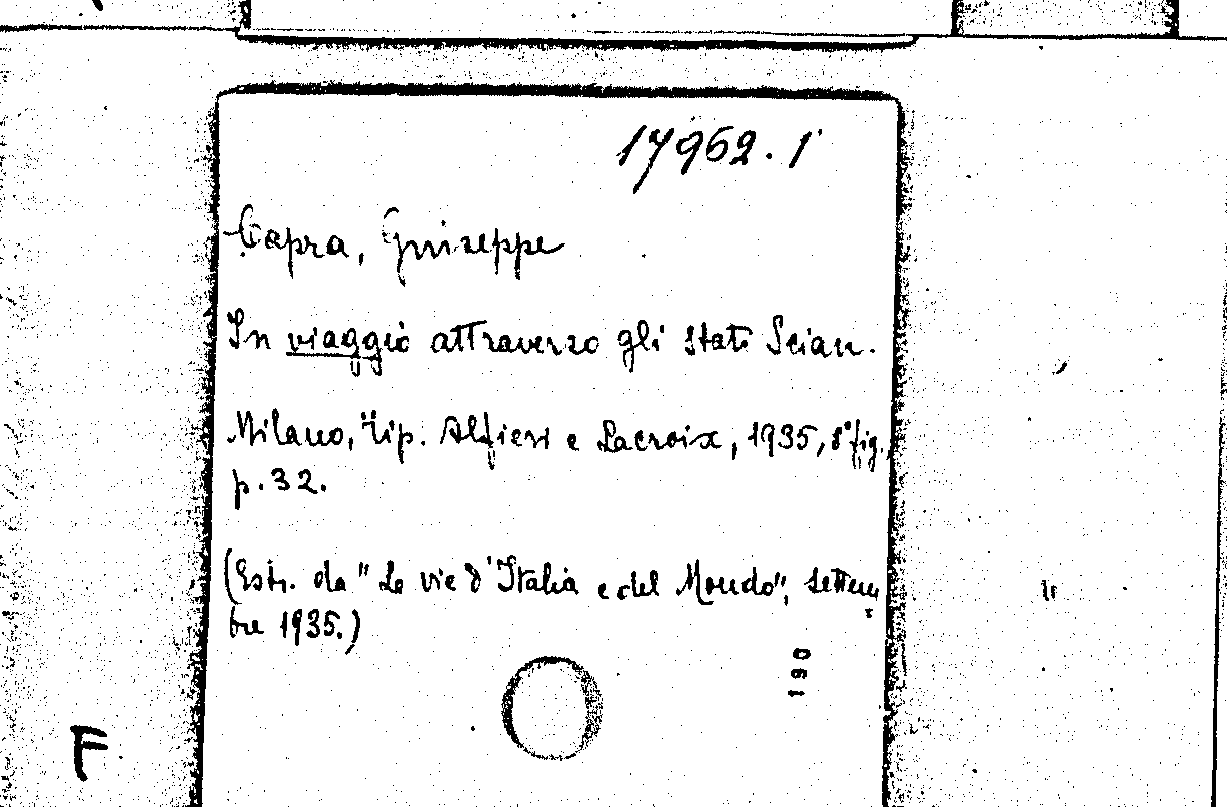 17962.1
Capra, Guiseppe
In viaggio attraverso gli Stati Scian.
Milano, Tip. Alfieri e Lacroix, 1935, 8° fig.,
p. 32.
(Estr. da "Le vie d'Italia e del Mondo", settem
bre 1935.)
190
F